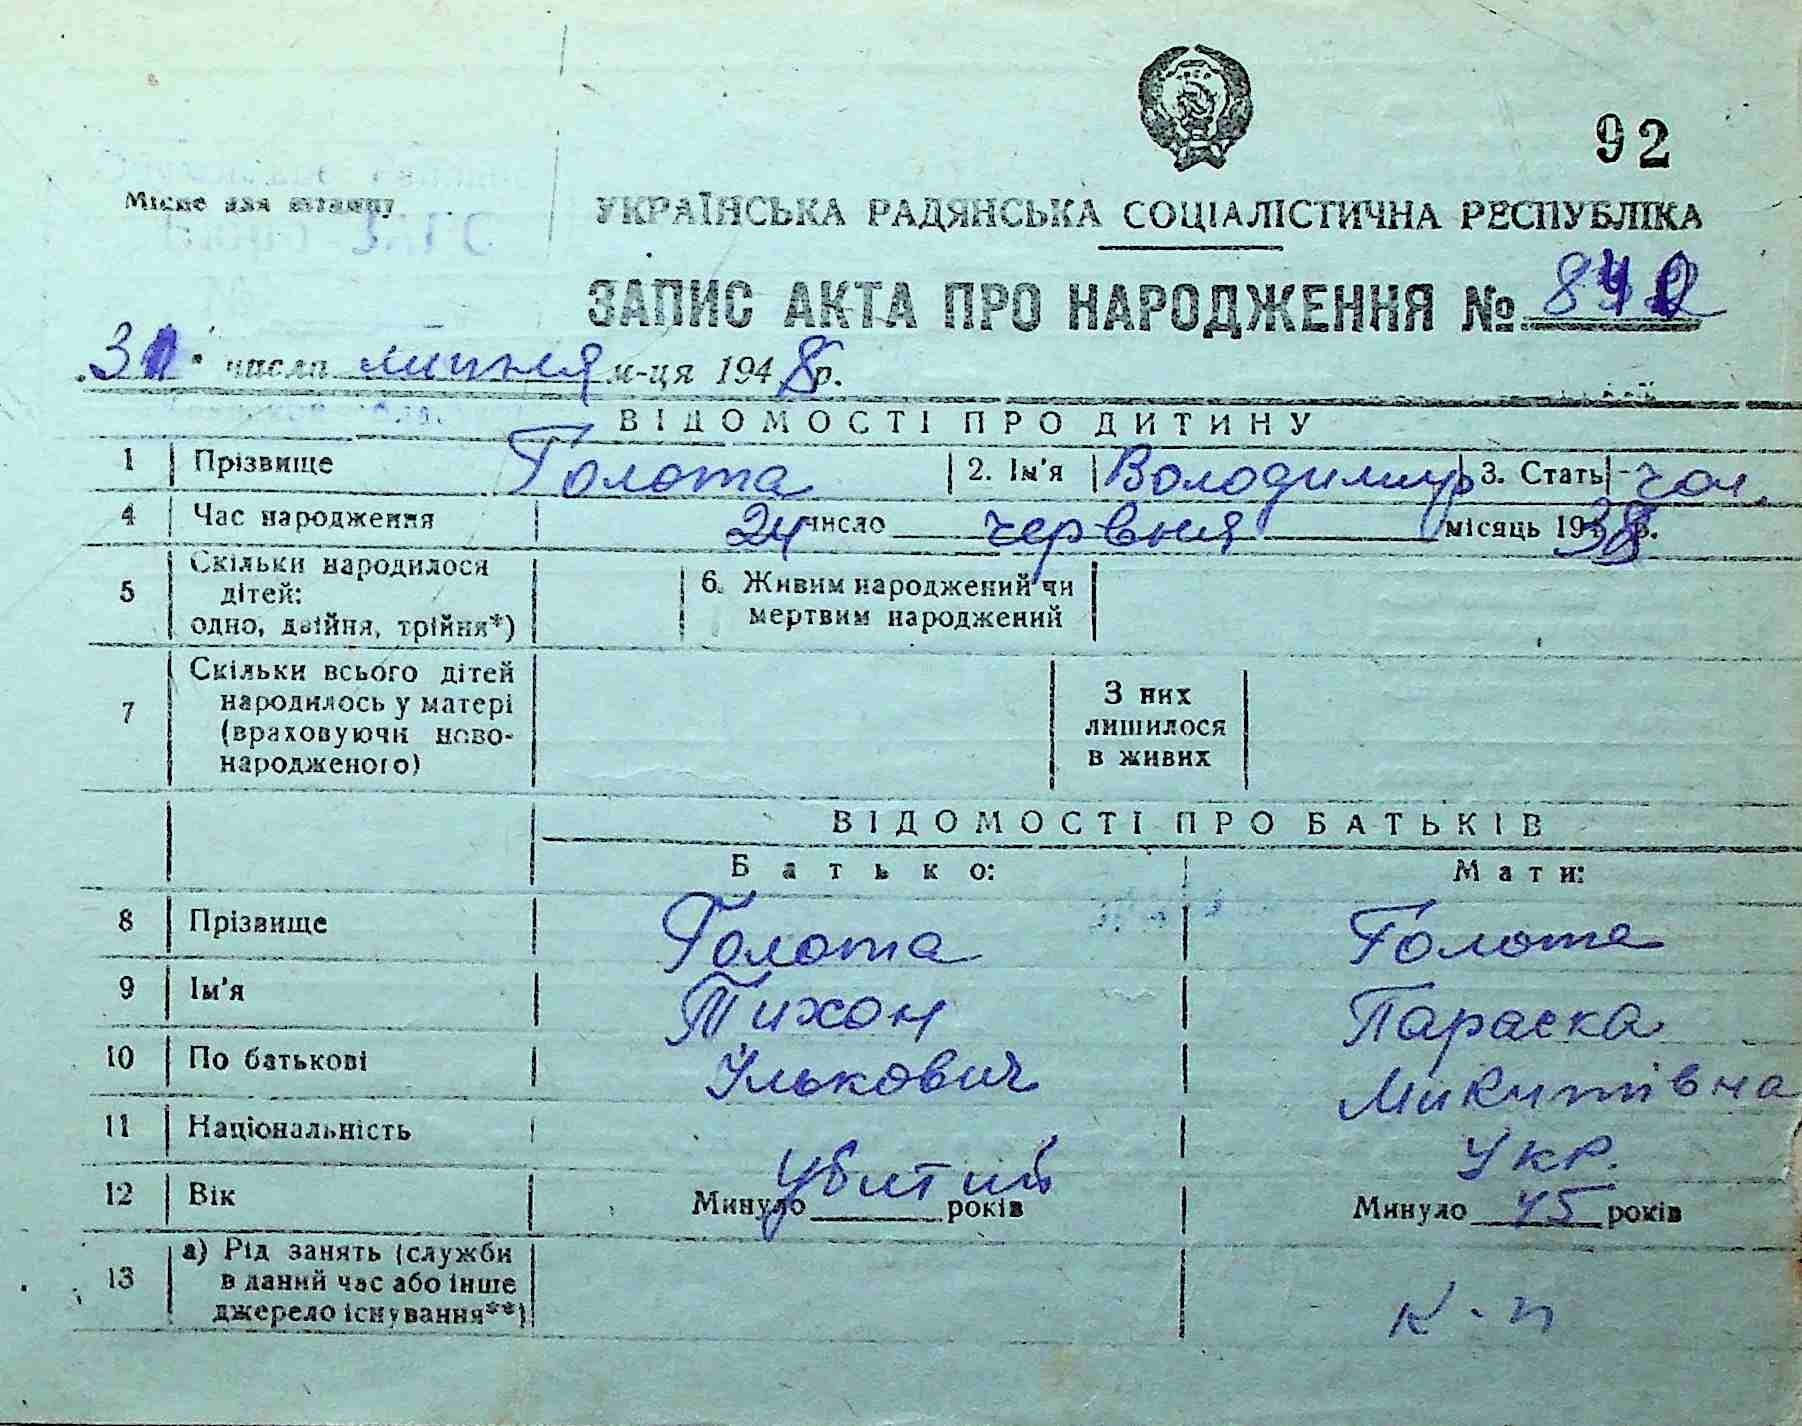 92
Місце для штампу
УКРАЇНСЬКА РАДЯНСЬКА СОЦІАЛІСТИЧНА РЕСПУБЛІКА
ЗАПИС АКТА ПРО НАРОДЖЕННЯ №
31 числа липня м-ця 1948 р.
ВІДОМОСТІ ПРО ДИТИНУ
1 Прізвище Голота 2. Ім'я Володимир 3. Стать чол.
4 Час народження 24 число червня місяць 1938 р.
5 Скільки народилося дітей: одно, двійня, трійня*) 6. Живим народжений чи мертвим народжений
7 Скільки всього дітей народилось у матері (враховуючи новонародженого) З них лишилося в живих
ВІДОМОСТІ ПРО БАТЬКІВ
Батько: Мати:
8 Прізвище Голота Голота
9 Ім'я Тихон Параска
10 По батькові Улькович Микитівна
11 Національність Укр.
12 Вік Минуло убитий років Минуло 45 років
13 а) Рід занять (служби в даний час або інше джерело існування**) к-п